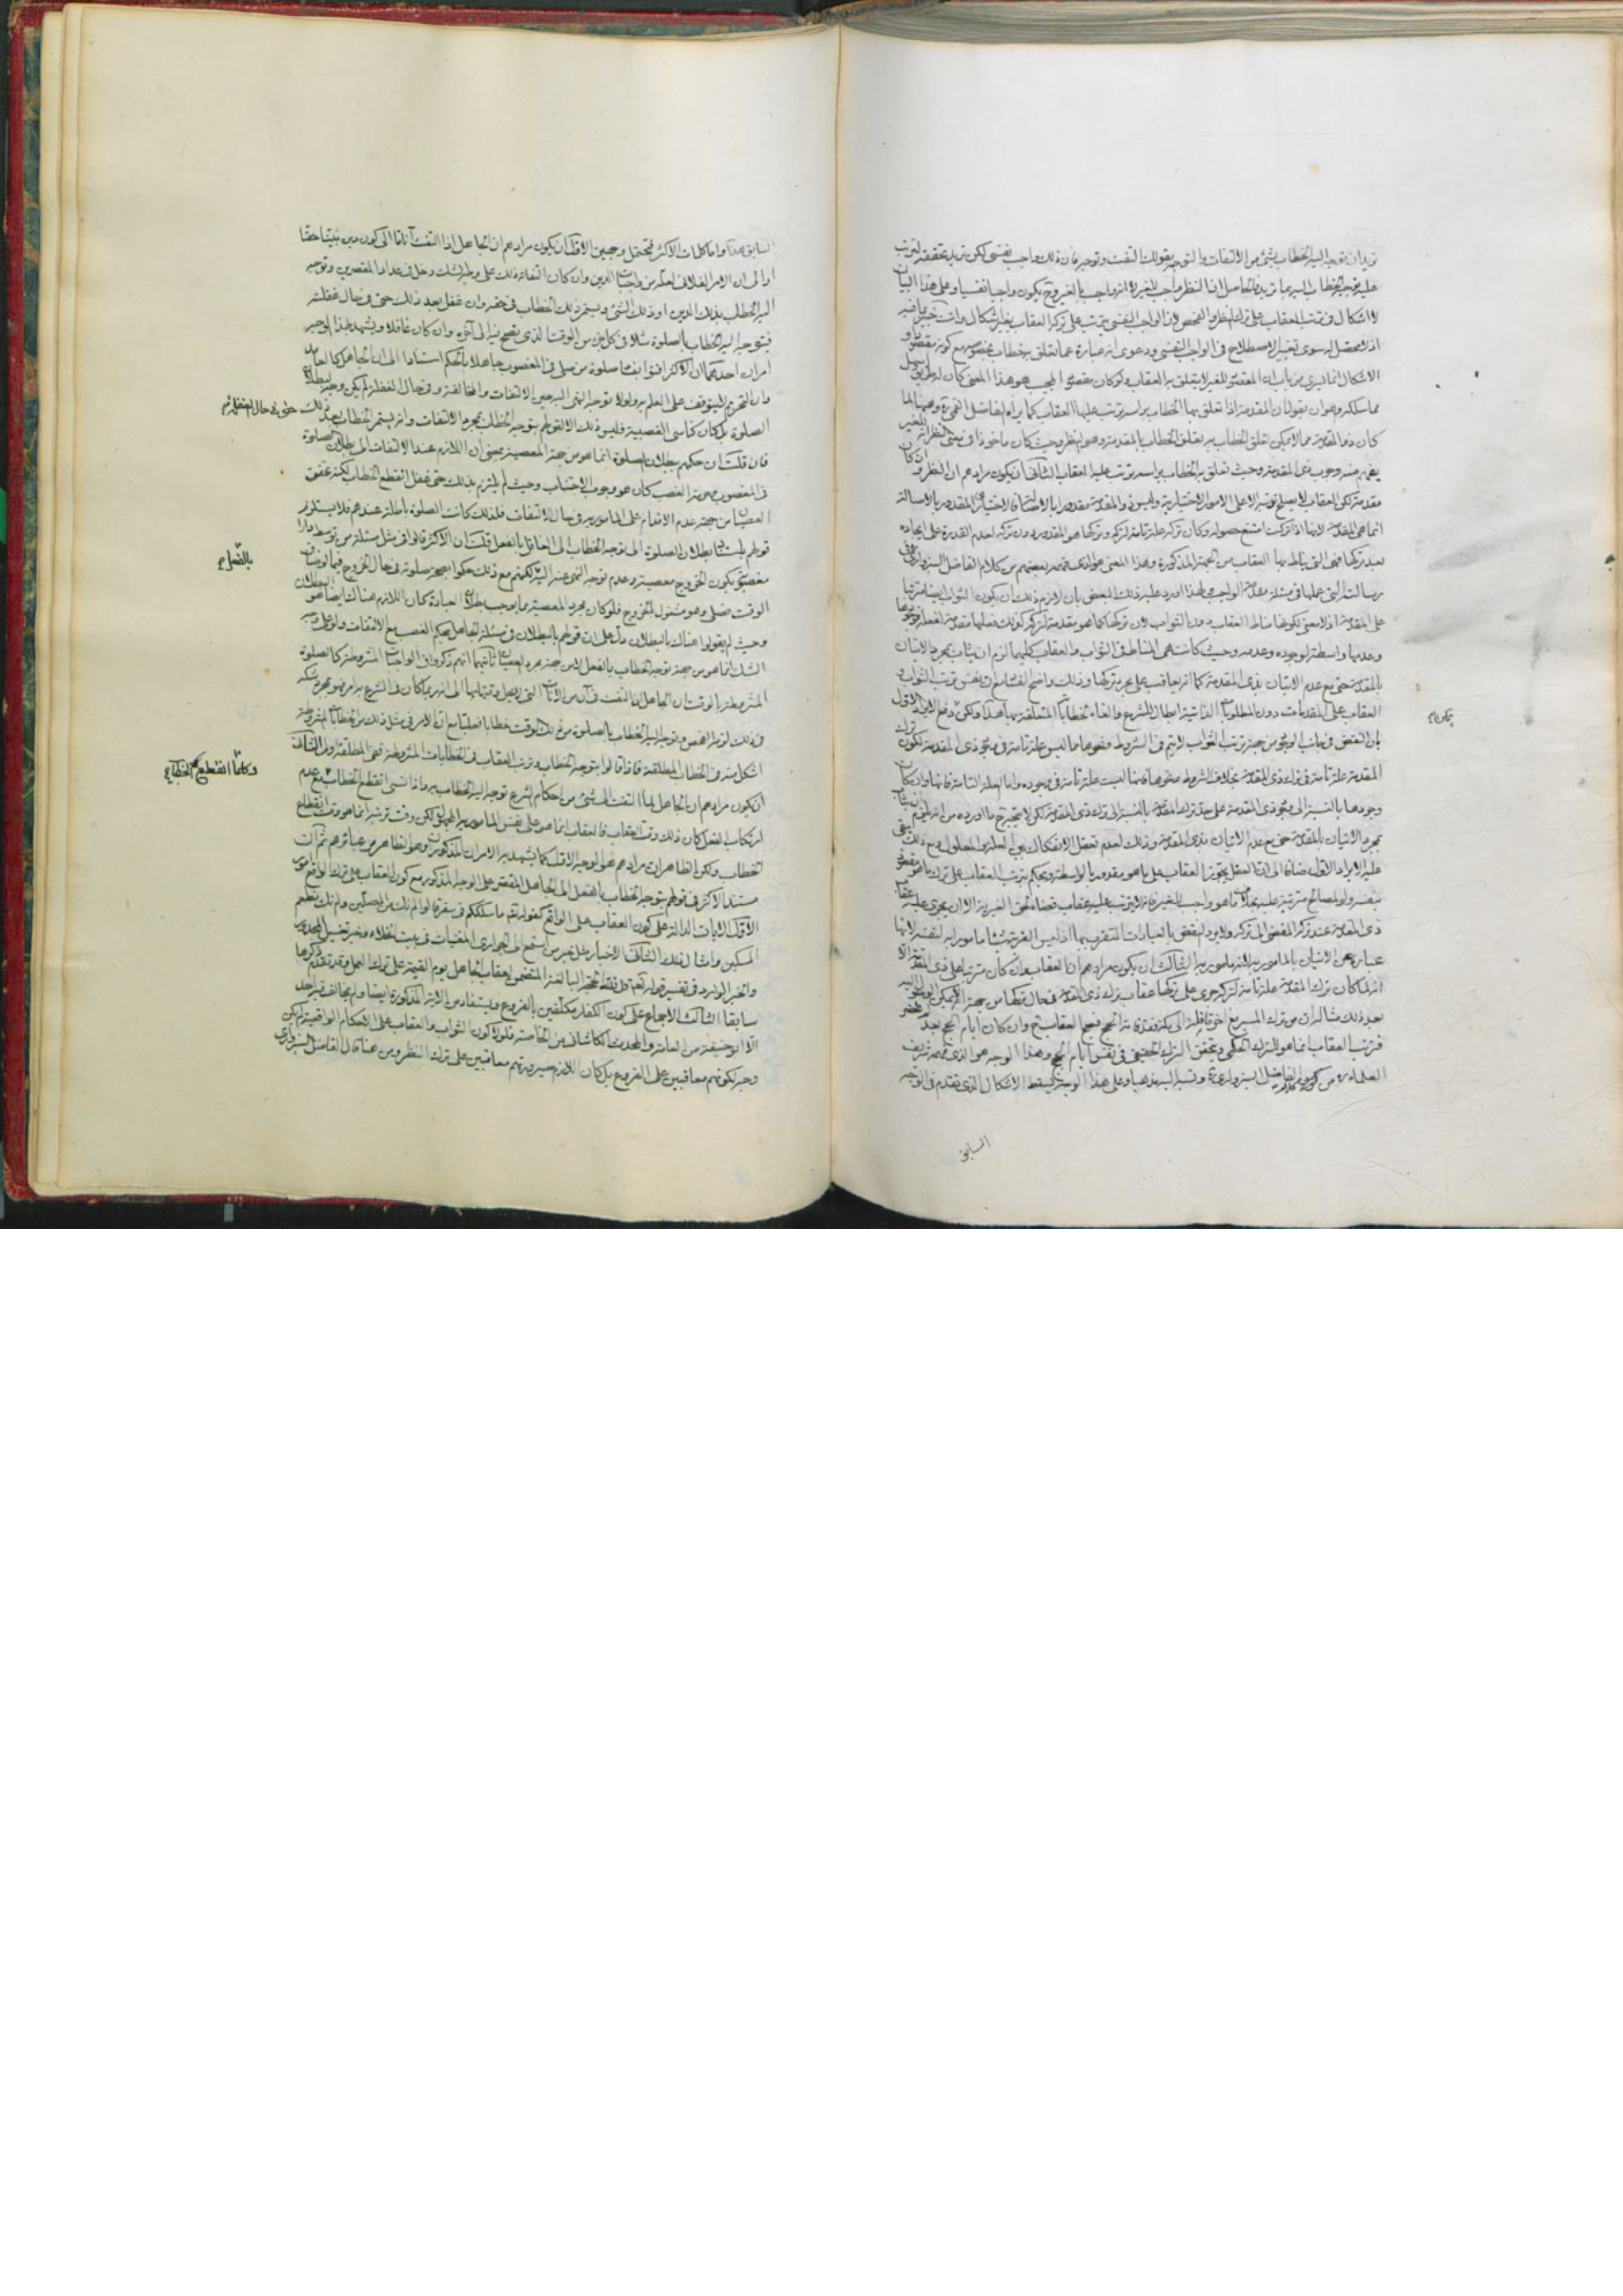 عليه فتوجيه الخطاب اليه
لا اشكال في ترتب العقاب على ترك النظر والفحص لان الواجب النفسي يترتب على تركه العقاب بغير اشكال وانت خبير بما فيه
اذ لا محصل له سوى تغيير الاصطلاح في الواجب النفسي ودعوى انه عبارة عما تعلق به خطاب بخصوصه مع كونه مقصودا
الاشكال انما يسري من باب ان المقصود للغير لا يتعلق به العقاب ولو كان مقصود المجيب هو هذا المعنى كان له طريق
مما سلكه وهو ان يقول ان المقدمة اذا تعلق بها الخطاب براسه ترتب عليها العقاب كما يراه الفاضل القمي ره وهيهنا لما
كان ذو المقدمة مما لا يمكن تعلق الخطاب به تعلق الخطاب بالمقدمة وهو النظر وحيث كان ماخوذا في معنى النظر انه للغير
يفهم منه وجوب ذي المقدمة وحيث تعلق به الخطاب براسه ترتب عليه العقاب الثاني ان يكون مرادهم ان النظر وان كان
مقدمة لكن العقاب لا يصلح ترتبه الا على الامور الاختيارية وليس ذو المقدمة مقدورا بالاصالة
انما هي المقدمة لانها اذا تركت امتنع حصوله وكان تركه علة تامة لتركه وتركها هو المقدور دون تركه لعدم القدرة على ايجاده
بعد تركها فهي التي يناط بها العقاب من الجهة المذكورة وهذا المعنى هو الذي فهمه بعضهم من كلام الفاضل السبزواري في
رسالته التي عملها في مسئلة مقدمة الواجب ولهذا اورد عليه ذلك البعض بان لازم ذلك ان يكون الثواب ايضا مترتبا
على المقدمة اذ لا معنى لكونها مناط العقاب دون الثواب لان تركها كما هو مقدمة لتركه كذلك فعلها مقدمة لفعله فوجودها
وعدمها واسطة لوجوده وعدمه وحيث كانت هي المناط في الثواب والعقاب كليهما لزم ان يثاب بمجرد الاتيان
بالمقدمة حتى مع عدم الاتيان بذي المقدمة كما انه يعاقب على مجرد تركها وذلك واضح الفساد
العقاب على المقدمات دون المطلوبات الذاتية ابطال للشرع والغاء لخطاباته المتعلقة بها هذا ولكن دفع الايراد الاول
بان النقض في جانب الوجود من جهة ترتب الثواب لا يتم في الشروط ونحوها مما ليس علة تامة في وجود ذي المقدمة لكون ترك
المقدمة علة تامة في ترك ذي المقدمة بخلاف الشروط ونحوها فانها ليست علة تامة في وجوده واما العلة التامة فانها وان كان
وجودها بالنسبة الى وجود ذي المقدمة على حد ترك المقدمة بالنسبة الى ترك ذي المقدمة لكن لا يتجه ح ما اورده من انه يلزم ان يثاب
بمجرد الاتيان بالمقدمة حتى مع عدم الاتيان بذي المقدمة وذلك لعدم تعقل الانفكاك بين العلة والمعلول ومع ذلك يبقى
عليه الايراد الاول مضافا الى ان العقل يجوز العقاب على ما هو مقدور بالواسطة ويحكم بترتب العقاب على ترك ما هو مقصود
بنفسه ولو لمصالح مترتبة عليه
ذي المقدمة عند ترك المفضي الى تركه
عبارة عن الاتيان بالمامور به لانه مامور به الثالث ان يكون مرادهم ان العقاب وان كان مترتبا على ذي المقدمة الا
انه لما كان ترك المقدمة علة تامة لتركه جرى على تركها عقاب ترك ذي المقدمة في حال تركها
بعد ذلك مثاله ان من ترك المسير مع اخر قافلة الى مكة فقد فاته الحج فيصح العقاب ح وان كان ايام الحج بعد لم تحضر
فترتب العقاب انما هو للترك الحكمي وتحقق الترك الحقيقي في نفس ايام الحج وهذا الوجه هو الذي فهمه شريف
العلماء ره من كلام الفاضل السبزواري ره ونسبه اليه مذهبا وعلى هذا الوجه يسقط الاشكال الذي تقدم في الوجه
السابق
السابق هذا واما كلمات الاكثر فتحتمل وجهين الاول ان يكون مرادهم ان الجاهل اذا التفت آنا ما الى كون دين نبينا حقا
او الى ان الامر الفلاني لعله من واجبات الدين وان كان التفاته ذلك على وجه الشك دخل في عداد المقصرين وتوجه
اليه الخطاب بذلك الدين او ذلك الشيء ويستمر ذلك الخطاب في حقه وان غفل بعد ذلك حتى في حال غفلته
فيتوجه اليه الخطاب بالصلوة مثلا في كل جزء من الوقت الذي يصح فيه الى آخره وان كان غافلا ويشهد بهذا الوجه
امران احدهما ان الاكثر افتوا بفساد صلوة من صلى في المغصوب جاهلا بالحكم استنادا الى ان الجاهل كالعامد
وان التحريم لا يتوقف على العلم به ولولا توجه النهي اليه حين الالتفات والمخالفة وفي حال الغفلة لم يكن وجه لبطلان
الصلوة بل كان كناسي الغصبية فليس ذلك الا لقولهم بتوجه الخطاب بمجرد الالتفات وانه يستمر الخطاب بعد ذلك
حتى في حال الغفلة
فان قلت ان حكمهم ببطلان الصلوة انما هو من جهة المعصية بمعنى ان اللازم عند الالتفات الى بطلان الصلوة
في المغصوب وحرمة الغصب كان هو وجوب الاجتناب وحيث لم يلتزم بذلك حتى غفل انقطع الخطاب لكنه تحقق
العصيان من جهة عدم الاقدام على المامور به في حال الالتفات فلذلك كانت الصلوة باطلة عندهم فلا يستلزم
قولهم ببطلان الصلوة الى توجه الخطاب الى الغافل بالفعل قلت ان الاكثر قالوا في مثل مسئلة من توسط دارا
مغصوبة بكون الخروج معصية وعدم توجه النهي عنه اليه لكنهم مع ذلك حكموا بصحة صلوته في حال الخروج فيما لو ضاق
الوقت فصلى وهو مشغول بالخروج فلو كان مجرد المعصية مما يوجب بطلان العبادة كان اللازم هناك ايضا هو البطلان
وحيث لم يقولوا هناك بالبطلان دل على ان قولهم بالبطلان في مسئلة الجاهل بحكم الغصب مع الالتفات ولو على وجه
الشك انما هو من جهة توجه الخطاب بالفعل لا من جهة مجرد العصيان ثانيهما انهم ذكروا في الواجبات المشروطة كالصلوة
المشروطة بالوقت ان الجاهل اذا التفت في آن من الآنات
في ذلك لزمه الفحص وتوجه اليه الخطاب بالصلوة من ذلك الوقت خطابا فعليا مع ان الامر في مثل ذلك من الخطابات المشروطة
اشكل منه في الخطابات المطلقة فاذا قالوا بتوجه الخطاب وترتب العقاب في الخطابات المشروطة ففي المطلقة اولى الثاني
ان يكون مرادهم ان الجاهل لما التفت الى شيء من احكام الشرع توجه اليه الخطاب به واذا نسي انقطع الخطاب
وكلما انقطع الخطاب
ارتكاب الفعل كان ذلك وقت العقاب فالعقاب انما هو على نفس المامور به المجهول لكن وقت ترتبه انما هو وقت انقطاع
الخطاب ولكن الظاهر ان مرادهم هو الوجه الاول كما يشهد به الامران المذكوران وهو الظاهر من عبائرهم ثم ان
مستند الاكثر في قولهم بتوجه الخطاب بالفعل الى الجاهل المقصر على الوجه المذكور مع كون العقاب على ترك الواقع امور
الاول الآيات الدالة على كون العقاب على الواقع كقوله تعالى ما سلككم في سقر قالوا لم نك من المصلين ولم نك نطعم
المسكين وامثال ذلك الثاني الاخبار مثل خبر من استمع الى الجواري المغنيات في بيت الخلاء وخبر تغسيل المجدور
والخبر الوارد في تفسير قوله تعالى قل فلله الحجة البالغة المتضمن لعقاب الجاهل يوم القيمة على ترك العمل وقد تقدم ذكرها
سابقا الثالث الاجماع على كون الكفار مكلفين بالفروع ويستفاد من الآية المذكورة ايضا ولم يخالف فيه احد
الا ابو حنيفة من العامة والمحدث الكاشاني من الخاصة فلولا كون الثواب والعقاب على الاحكام الواقعية لم يكن
وجه لكونهم معاقبين على الفروع بل كان اللازم صيرورتهم معاقبين على ترك النظر ومن هنا قال الفاضل السبزواري